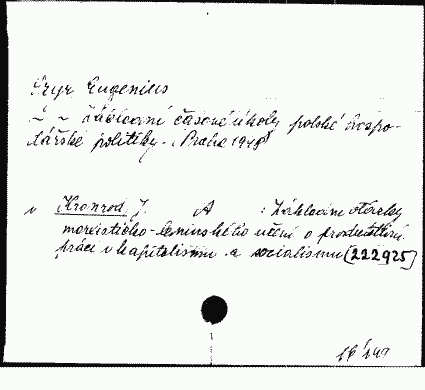 Szyr Eugenius
— " — Základní časové úkoly polské hospo-
dářské politiky. (Praha 1948)
v Kronrod J. A : Základní otázky
marxisticko-leninského učení o produktivní
práci v kapitalismu a socialismu (222925)